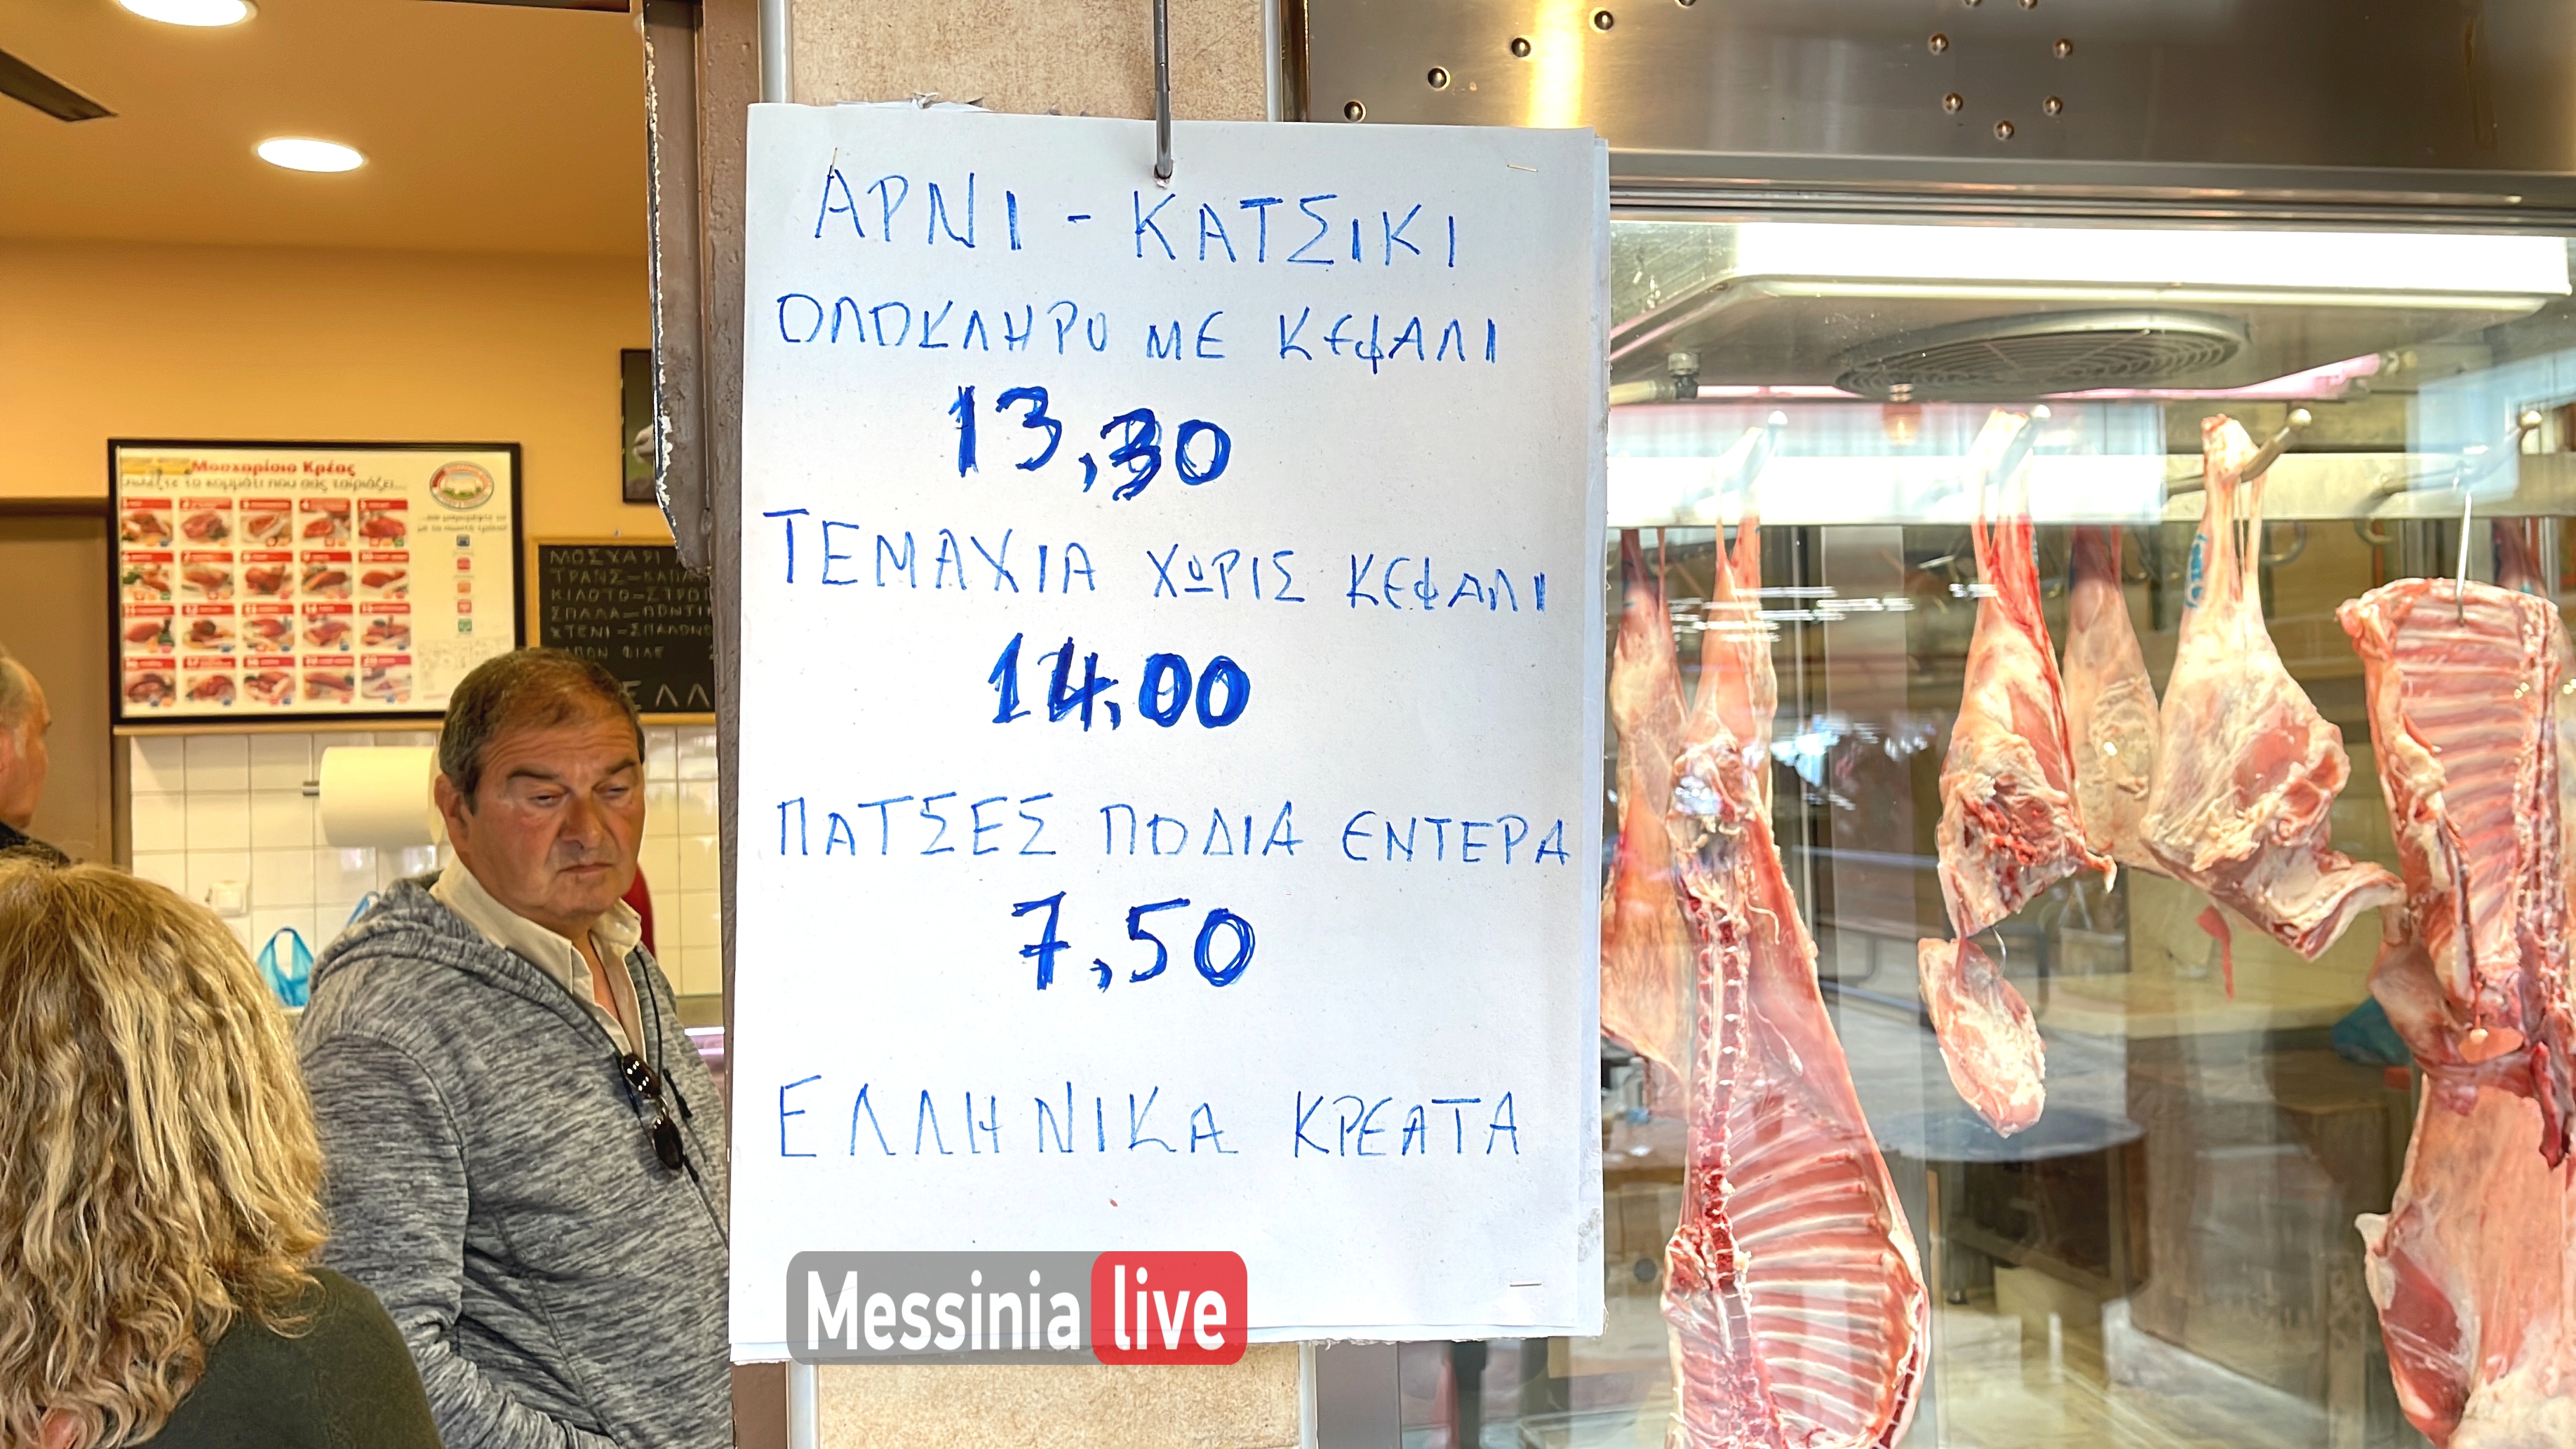 ΑΡΝΙ - ΚΑΤΣΙΚΙ
ΟΛΟΚΛΗΡΟ ΜΕ ΚΕΦΑΛΙ
13,30
ΤΕΜΑΧΙΑ ΧΩΡΙΣ ΚΕΦΑΛΙ
14,00
ΠΑΤΣΕΣ ΠΟΔΙΑ ΕΝΤΕΡΑ
7,50
ΕΛΛΗΝΙΚΑ ΚΡΕΑΤΑ
Messinia live
Μοσχαρίσιο Κρέας
το κομμάτι που σας ταιριάζει...
ΜΟΣΧΑΡΙ
ΤΡΑΝΣ-ΚΑΠΑ
ΚΙΛΟΤΟ-ΣΤΡΟΓ
ΣΠΑΛΑ-ΠΟΝΤΙΚ
ΧΤΕΝΙ-ΣΠΑΛΟΜ
ΦΙΛΕ
ΕΛΛ